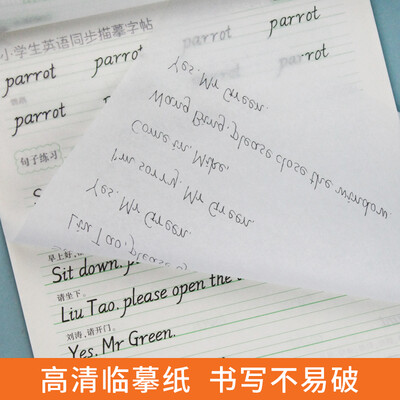 小学生英语同步描摹字帖
parrot parrot parrot parrot
鹦鹉
parrot parrot parrot
句子练习
Yes, Mr Green.
Wang Bing, please close the window.
Come in, Mike.
I'm sorry, Mr Green.
Yes, Mr Green.
Liu Tao, please
早上好,
Sit down,
请坐下。
Liu Tao, please open the
刘涛,请开门。
Yes, Mr Green.
高清临摹纸 书写不易破